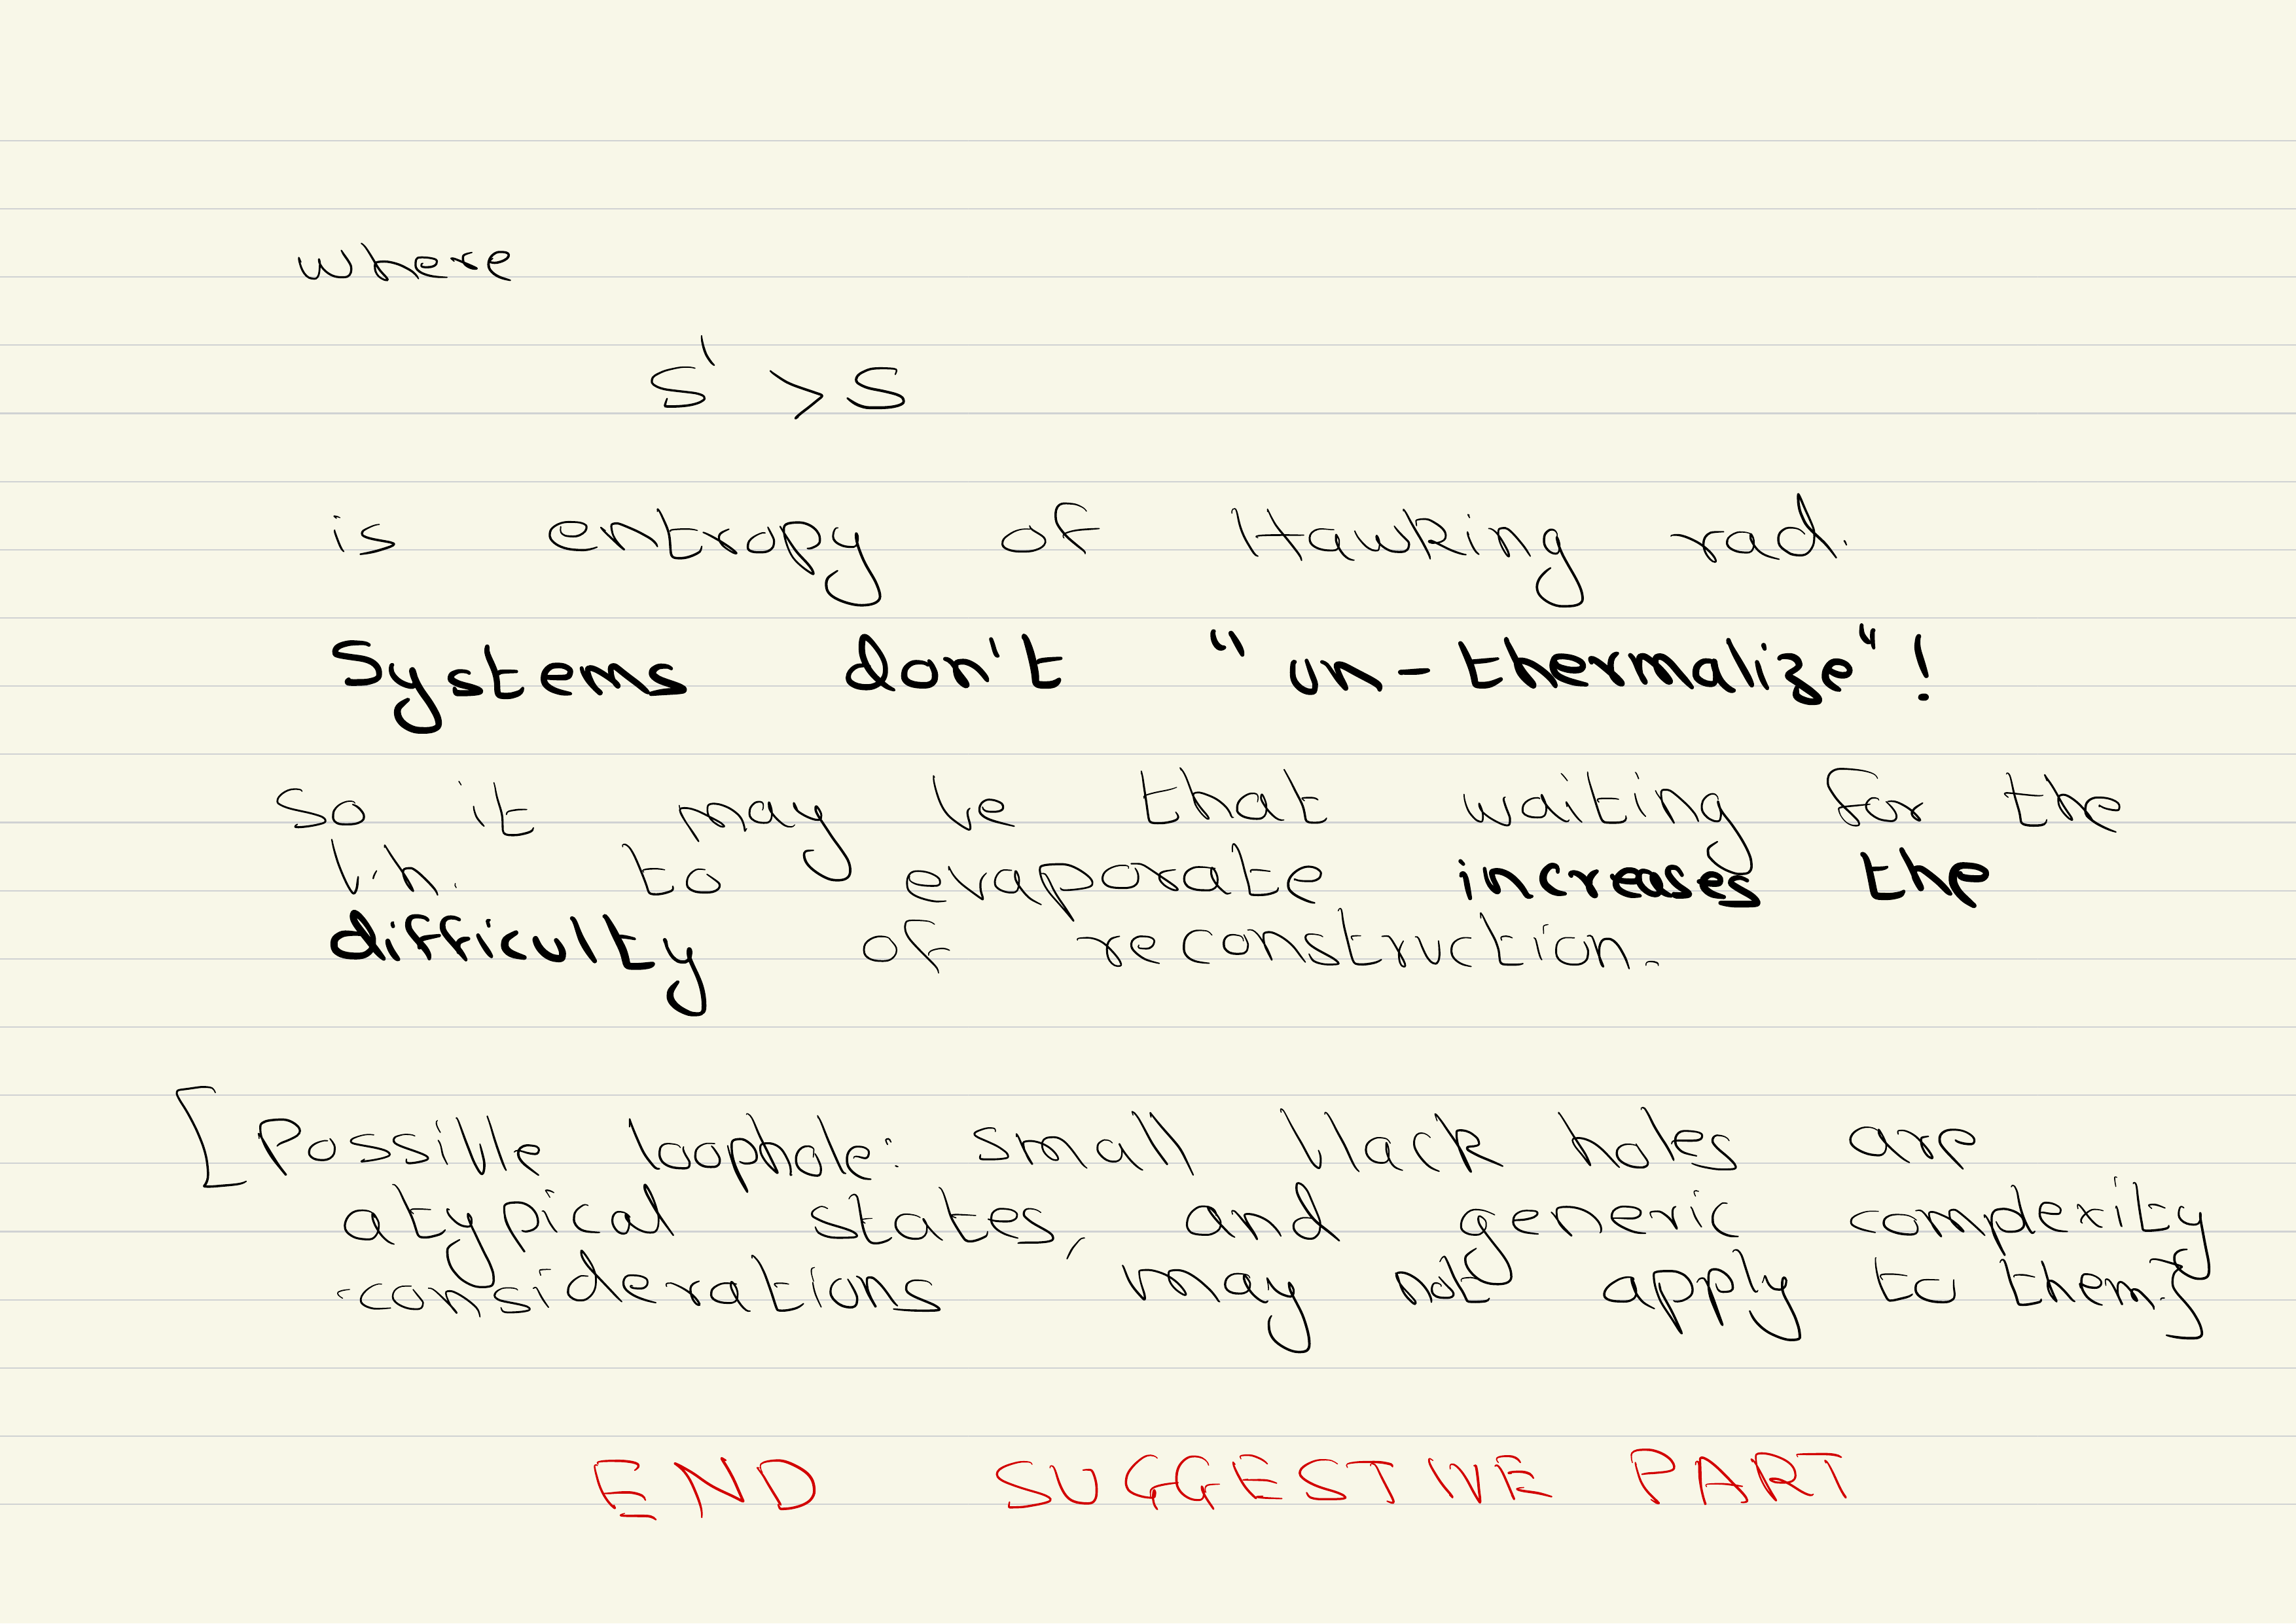 where
S' > S
is entropy of Hawking rad.
Systems don't "un-thermalize"!
So it may be that waiting for the
b.h. to evaporate increases the
difficulty of reconstruction.
[Possible loophole: small black holes are
atypical states, and generic complexity
considerations may not apply to them.]
END SUGGESTIVE PART